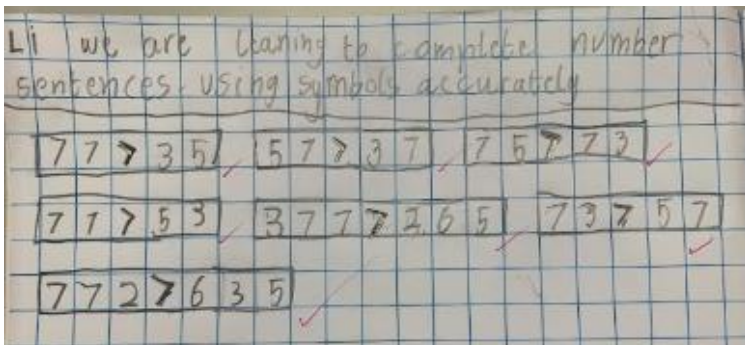 Li we are leaning to complete number
sentences using symbols accurately
77>35 57>37 75>73
77>53 377>265 73>57
772>635